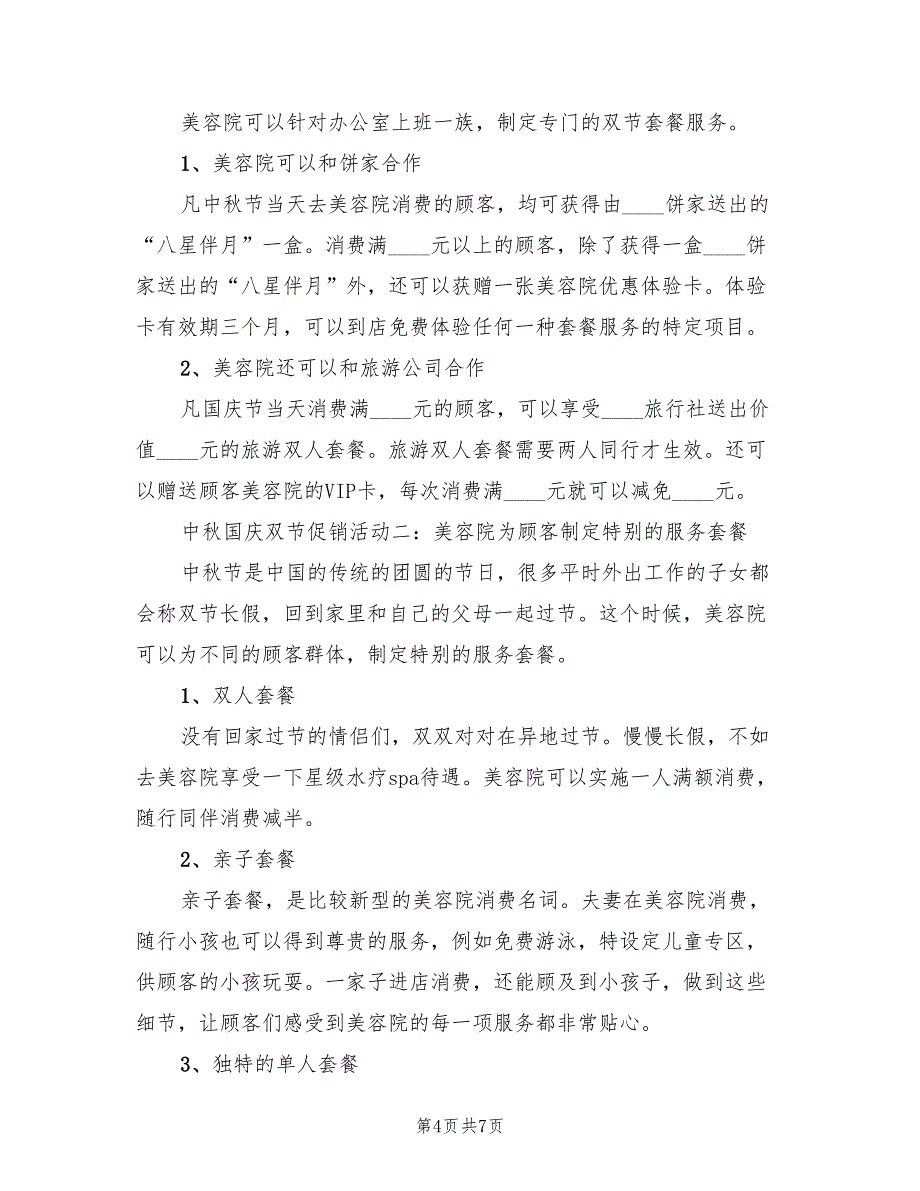 美容院可以针对办公室上班一族，制定专门的双节套餐服务。
1、美容院可以和饼家合作
凡中秋节当天去美容院消费的顾客，均可获得由____饼家送出的
“八星伴月”一盒。消费满____元以上的顾客，除了获得一盒____饼
家送出的“八星伴月”外，还可以获赠一张美容院优惠体验卡。体验
卡有效期三个月，可以到店免费体验任何一种套餐服务的特定项目。
2、美容院还可以和旅游公司合作
凡国庆节当天消费满____元的顾客，可以享受____旅行社送出价
值____元的旅游双人套餐。旅游双人套餐需要两人同行才生效。还可
以赠送顾客美容院的VIP卡，每次消费满____元就可以减免____元。
中秋国庆双节促销活动二：美容院为顾客制定特别的服务套餐
中秋节是中国的传统的团圆的节日，很多平时外出工作的子女都
会称双节长假，回到家里和自己的父母一起过节。这个时候，美容院
可以为不同的顾客群体，制定特别的服务套餐。
1、双人套餐
没有回家过节的情侣们，双双对对在异地过节。慢慢长假，不如
去美容院享受一下星级水疗spa待遇。美容院可以实施一人满额消费，
随行同伴消费减半。
2、亲子套餐
亲子套餐，是比较新型的美容院消费名词。夫妻在美容院消费，
随行小孩也可以得到尊贵的服务，例如免费游泳，特设定儿童专区，
供顾客的小孩玩耍。一家子进店消费，还能顾及到小孩子，做到这些
细节，让顾客们感受到美容院的每一项服务都非常贴心。
3、独特的单人套餐
第4页共7页